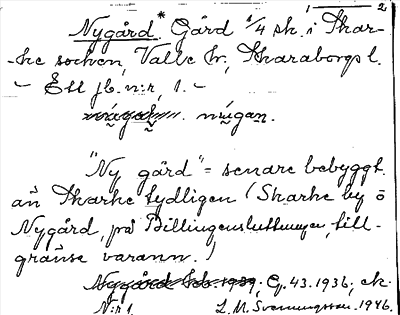 1 — 2
Nygård.* Gård 1/4 sk. i Skar-
ke socken, Valle hr, Skaraborgs l.
– Ett jb. n:r, 1. –
nu̯gan.
"Ny gård" = senare bebyggt
än Skarke tydligen (Skarke by o
Nygård, på Billingensluttningen, till-
gränse varann.)
Nygård Gsb. 1939. G. 43. 1936, ek.
N:r 1. L. M. Svenungsson. 1946.